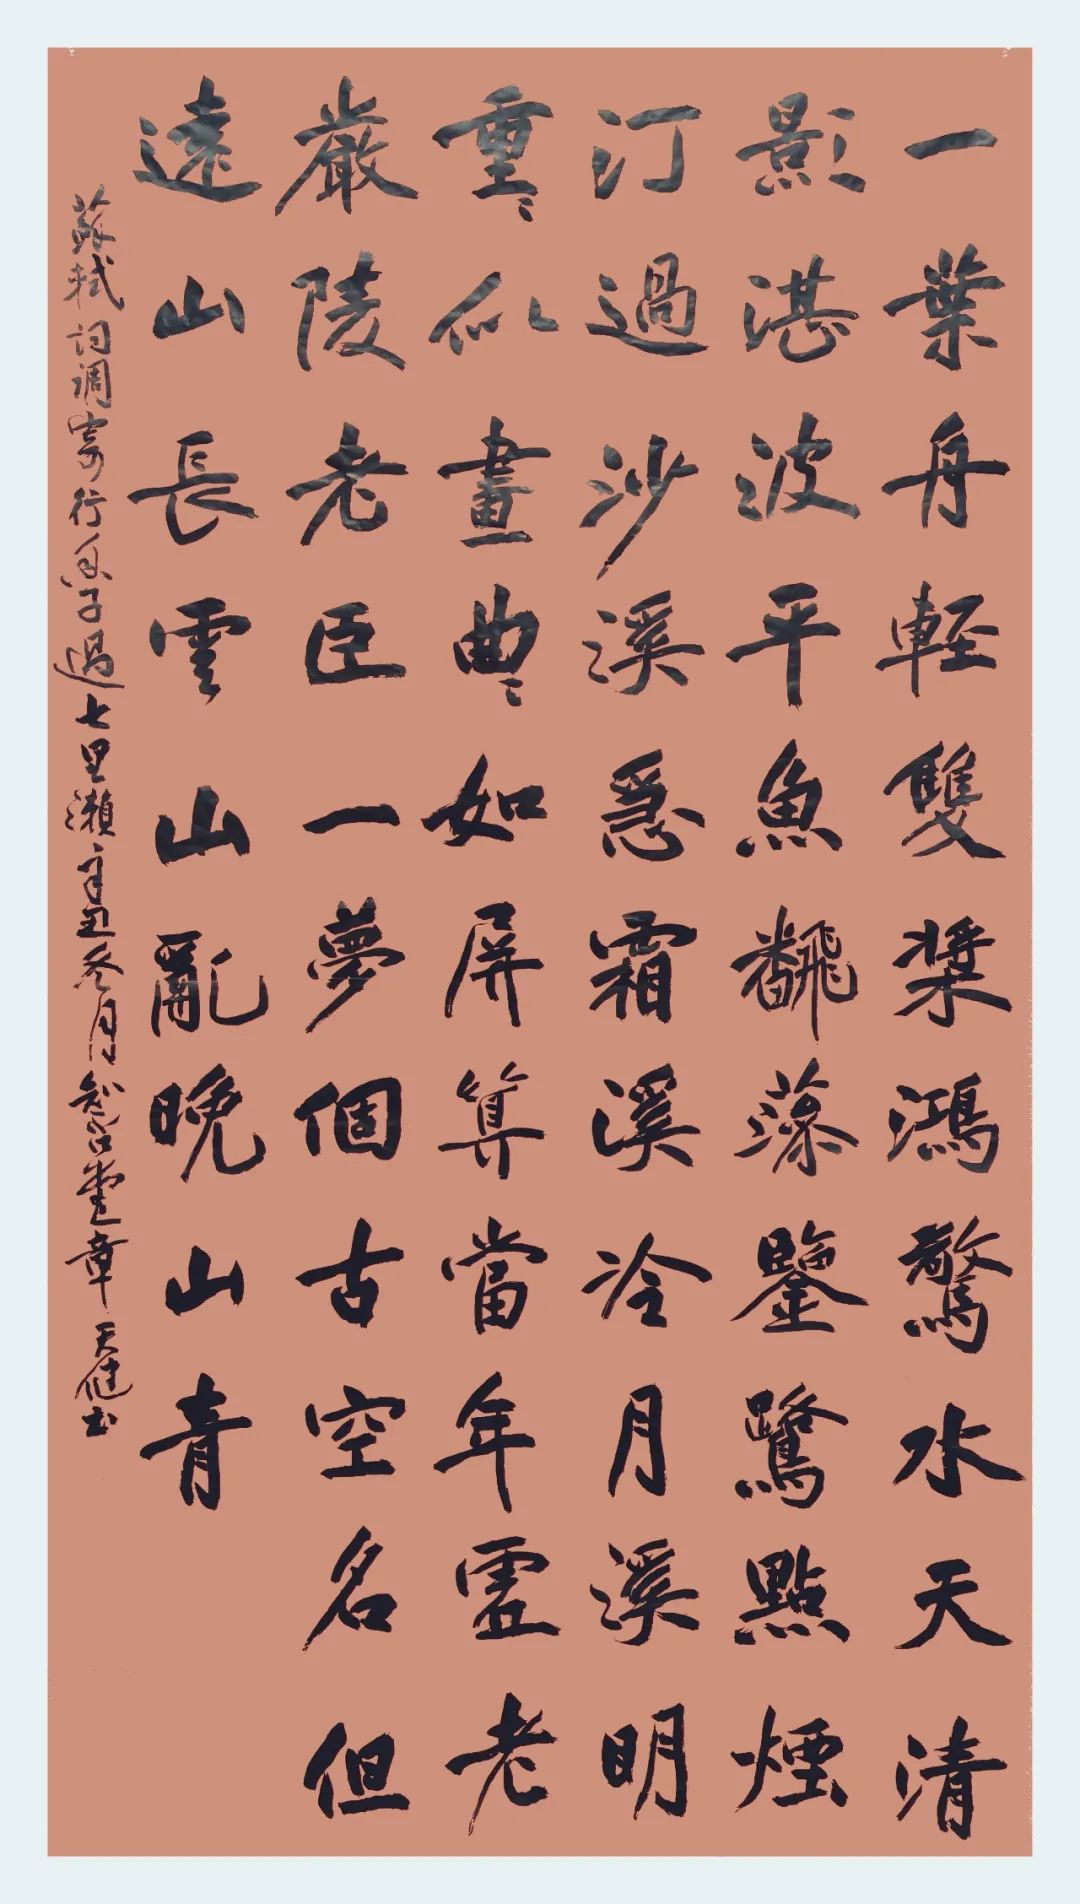 一葉舟輕雙槳鴻驚水天清
影湛波平魚飜藻鑒鷺點煙
汀過沙溪急霜溪冷月溪明
重〻似畫曲〻如屏算當年虛老
嚴陵老臣一夢個古空名但
遠山長雲山亂晚山青
蘇軾词调寄行香子過七里瀨辛丑冬月堂章天健书